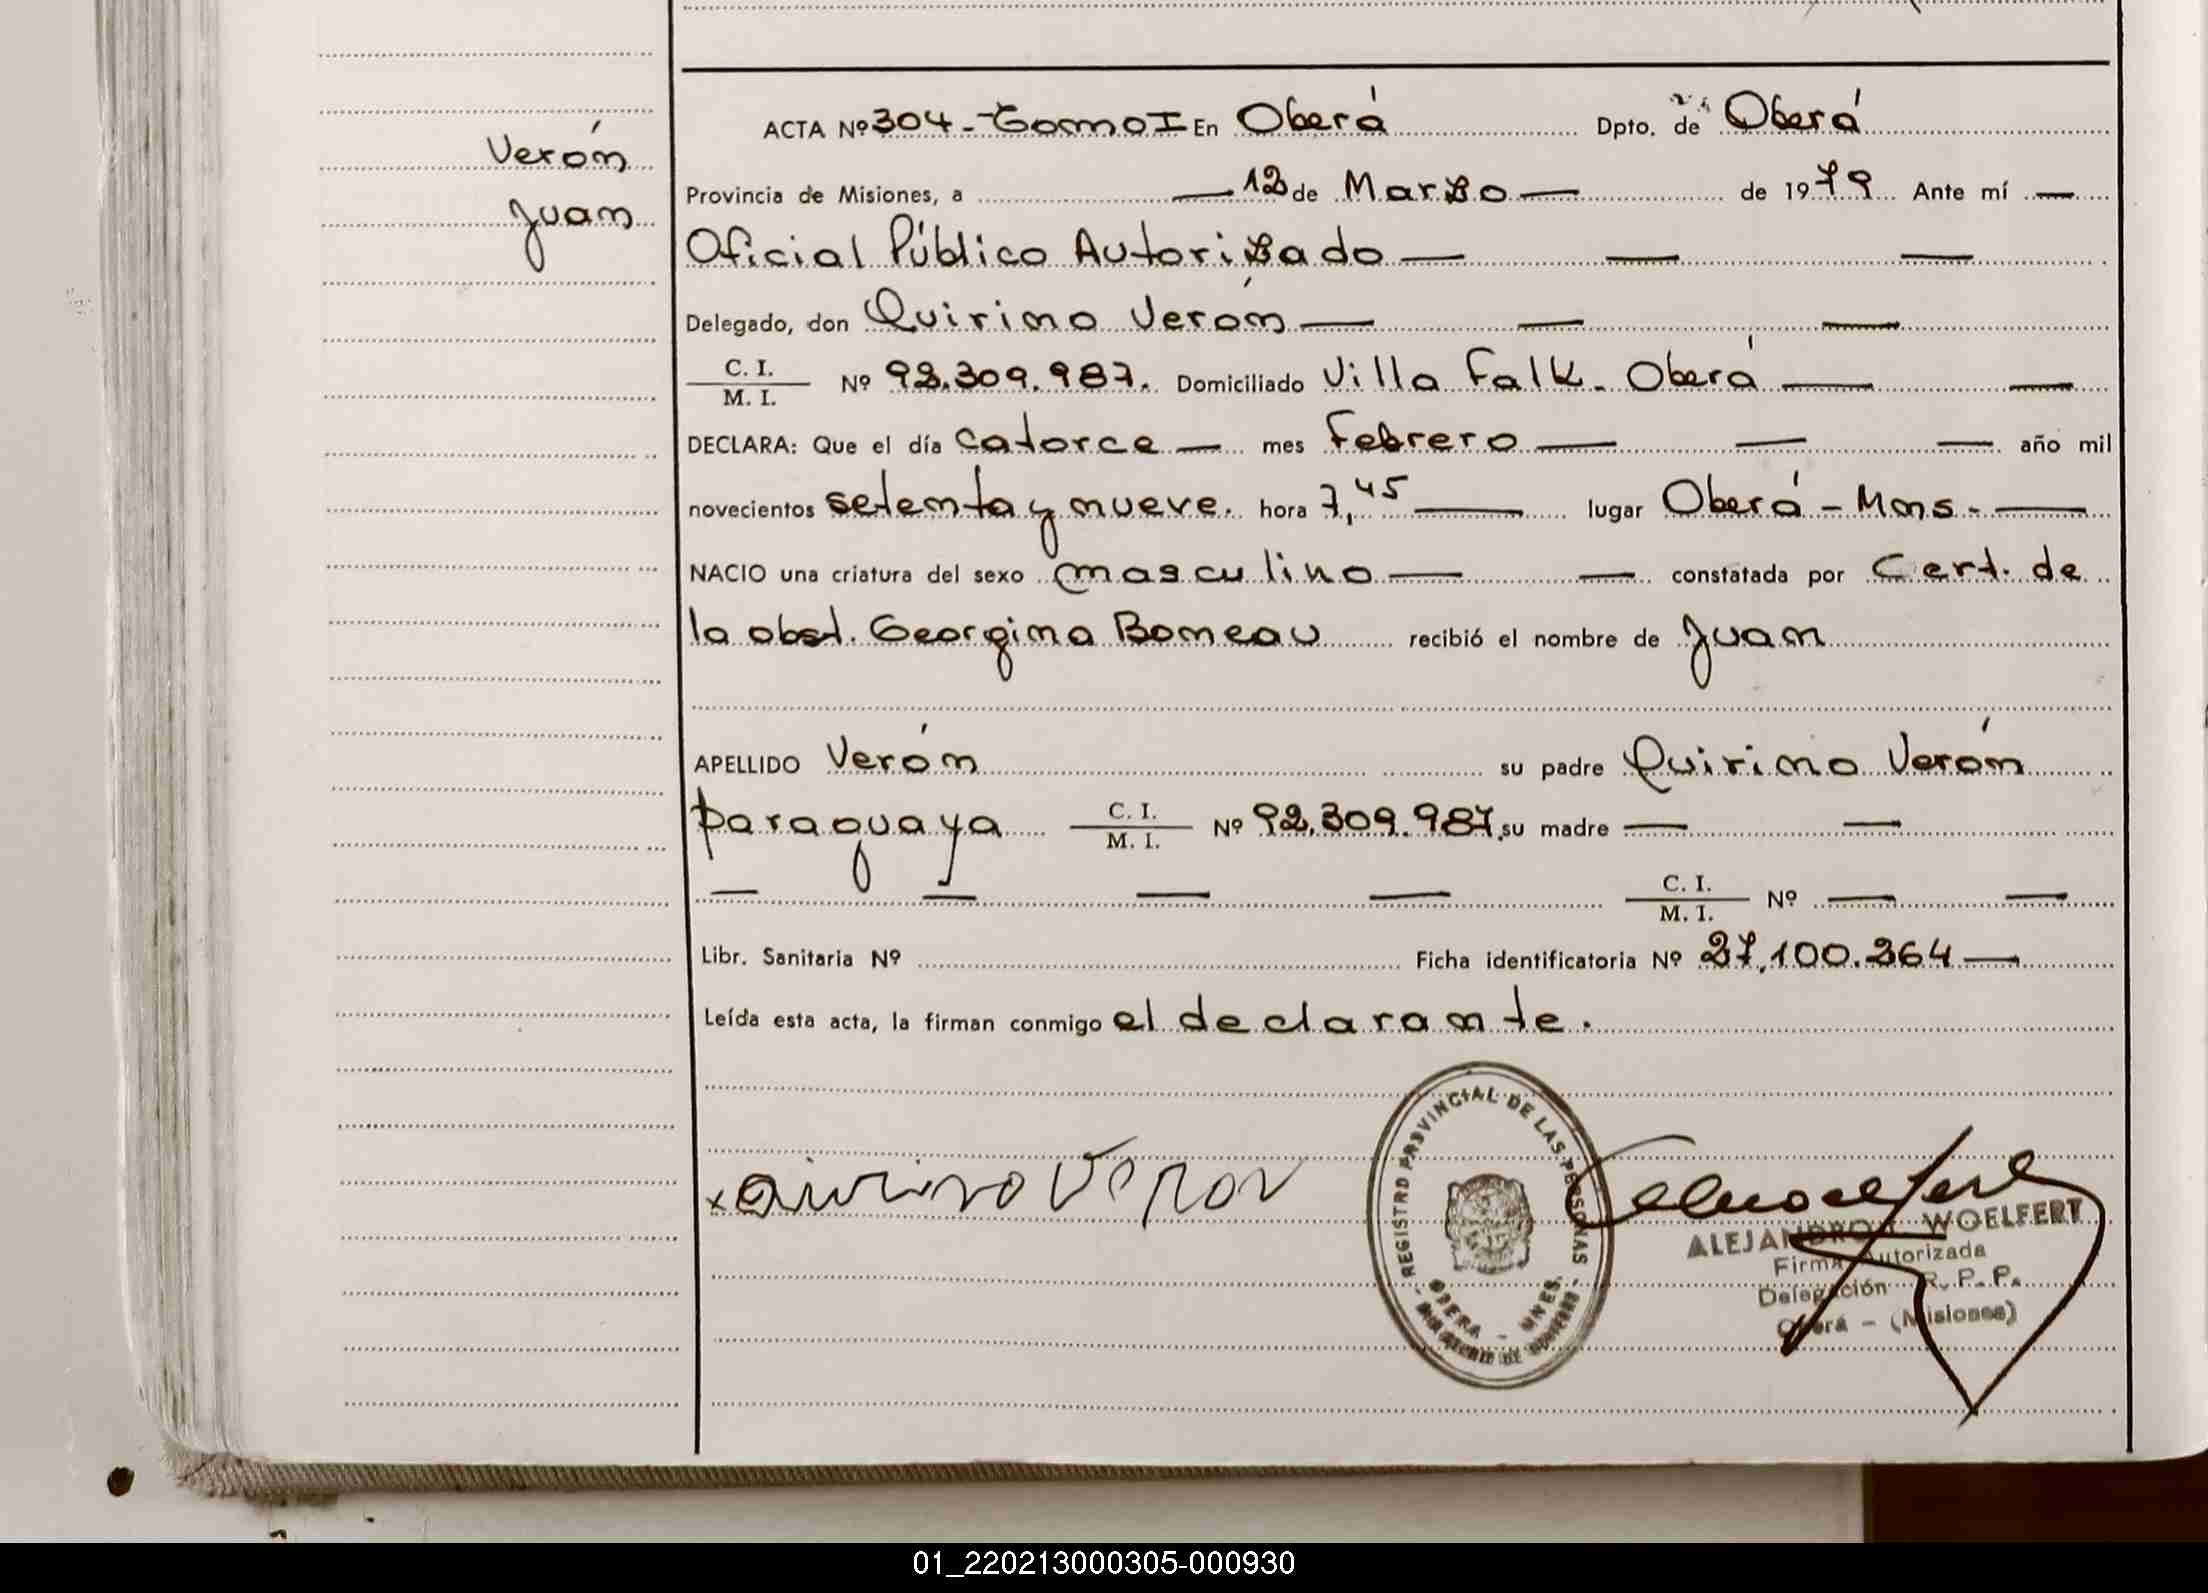 Verón
Juan
ACTA Nº 304 - Tomo I En Oberá Dpto. de Oberá
Provincia de Misiones, a — 12 de Marzo — de 1979 Ante mí —
Oficial Público Autorizado — — —
Delegado, don Quirino Verón — — —
C. I. / M. I. Nº 92.309.987. Domiciliado Villa Falk - Oberá — —
DECLARA: Que el día catorce — mes Febrero — — — año mil
novecientos setenta y nueve. hora 7,45 — lugar Oberá - Mns. —
NACIO una criatura del sexo masculino — — constatada por Cert. de
la obst. Georgina Boneau recibió el nombre de Juan
APELLIDO Verón su padre Quirino Verón
paraguaya C. I. / M. I. Nº 92.309.987, su madre — —
— — — — C. I. / M. I. Nº — —
Libr. Sanitaria Nº Ficha identificatoria Nº 27.100.264 —
Leída esta acta, la firman conmigo el declarante.
x Quirino Veron
REGISTRO PROVINCIAL DE LAS PERSONAS
OBERA - MNES.
ALEJANDRO WOELFERT
Firma Autorizada
Delegación R. P. P.
Oberá - (Misiones)
01_220213000305-000930